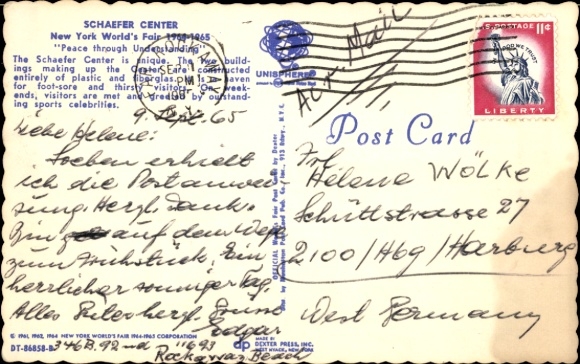 SCHAEFER CENTER
New York World's Fair 1964-1965
"Peace through Understanding"
The Schaefer Center is unique. The two build-
ings making up the Center are constructed
entirely of plastic and fiberglas. It is a haven
for foot-sore and thirsty visitors. On week-
ends, visitors are met and greeted by outstand-
ing sports celebrities.
9. Sept. 65
Liebe Helene!
Soeben erhielt
ich die Postanwei
sung. Herzl. Dank.
Bin auf dem Wege
zum Frühstück. Ein
herrlicher sonniger Tag.
Alles Gute herzl. Gruss
Edgar
© 1961, 1962, 1964 NEW YORK WORLD'S FAIR 1964-1965 CORPORATION
DT-86858-B
346 B. 92nd 11693
Rockaway Beach
UNISPHERE
OFFICIAL World's Fair Post Card by Dexter
PM
Air Mail
U.S. POSTAGE 11¢
IN GOD WE TRUST
LIBERTY
Post Card
Frl.
Helene WÖLKE
Schüttstrasse 27
2100/Hbg/Harburg
West Germany
dp
MADE BY
DEXTER PRESS, INC.
WEST NYACK, NEW YORK